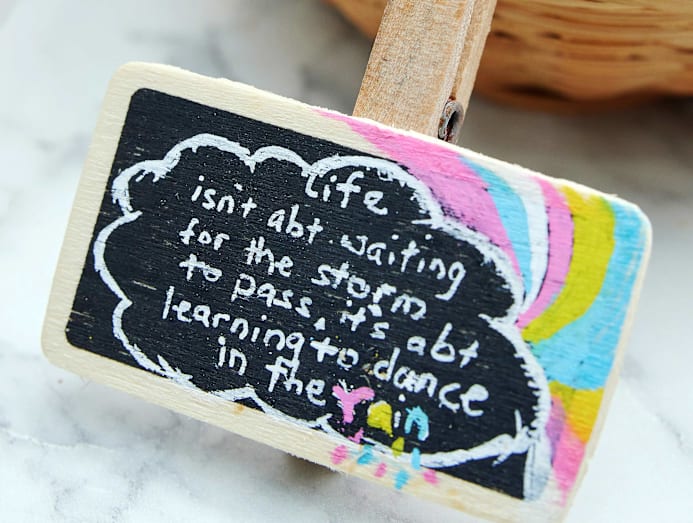 Life
isn't abt waiting
for the storm
to pass, it's abt
learning to dance
in the rain